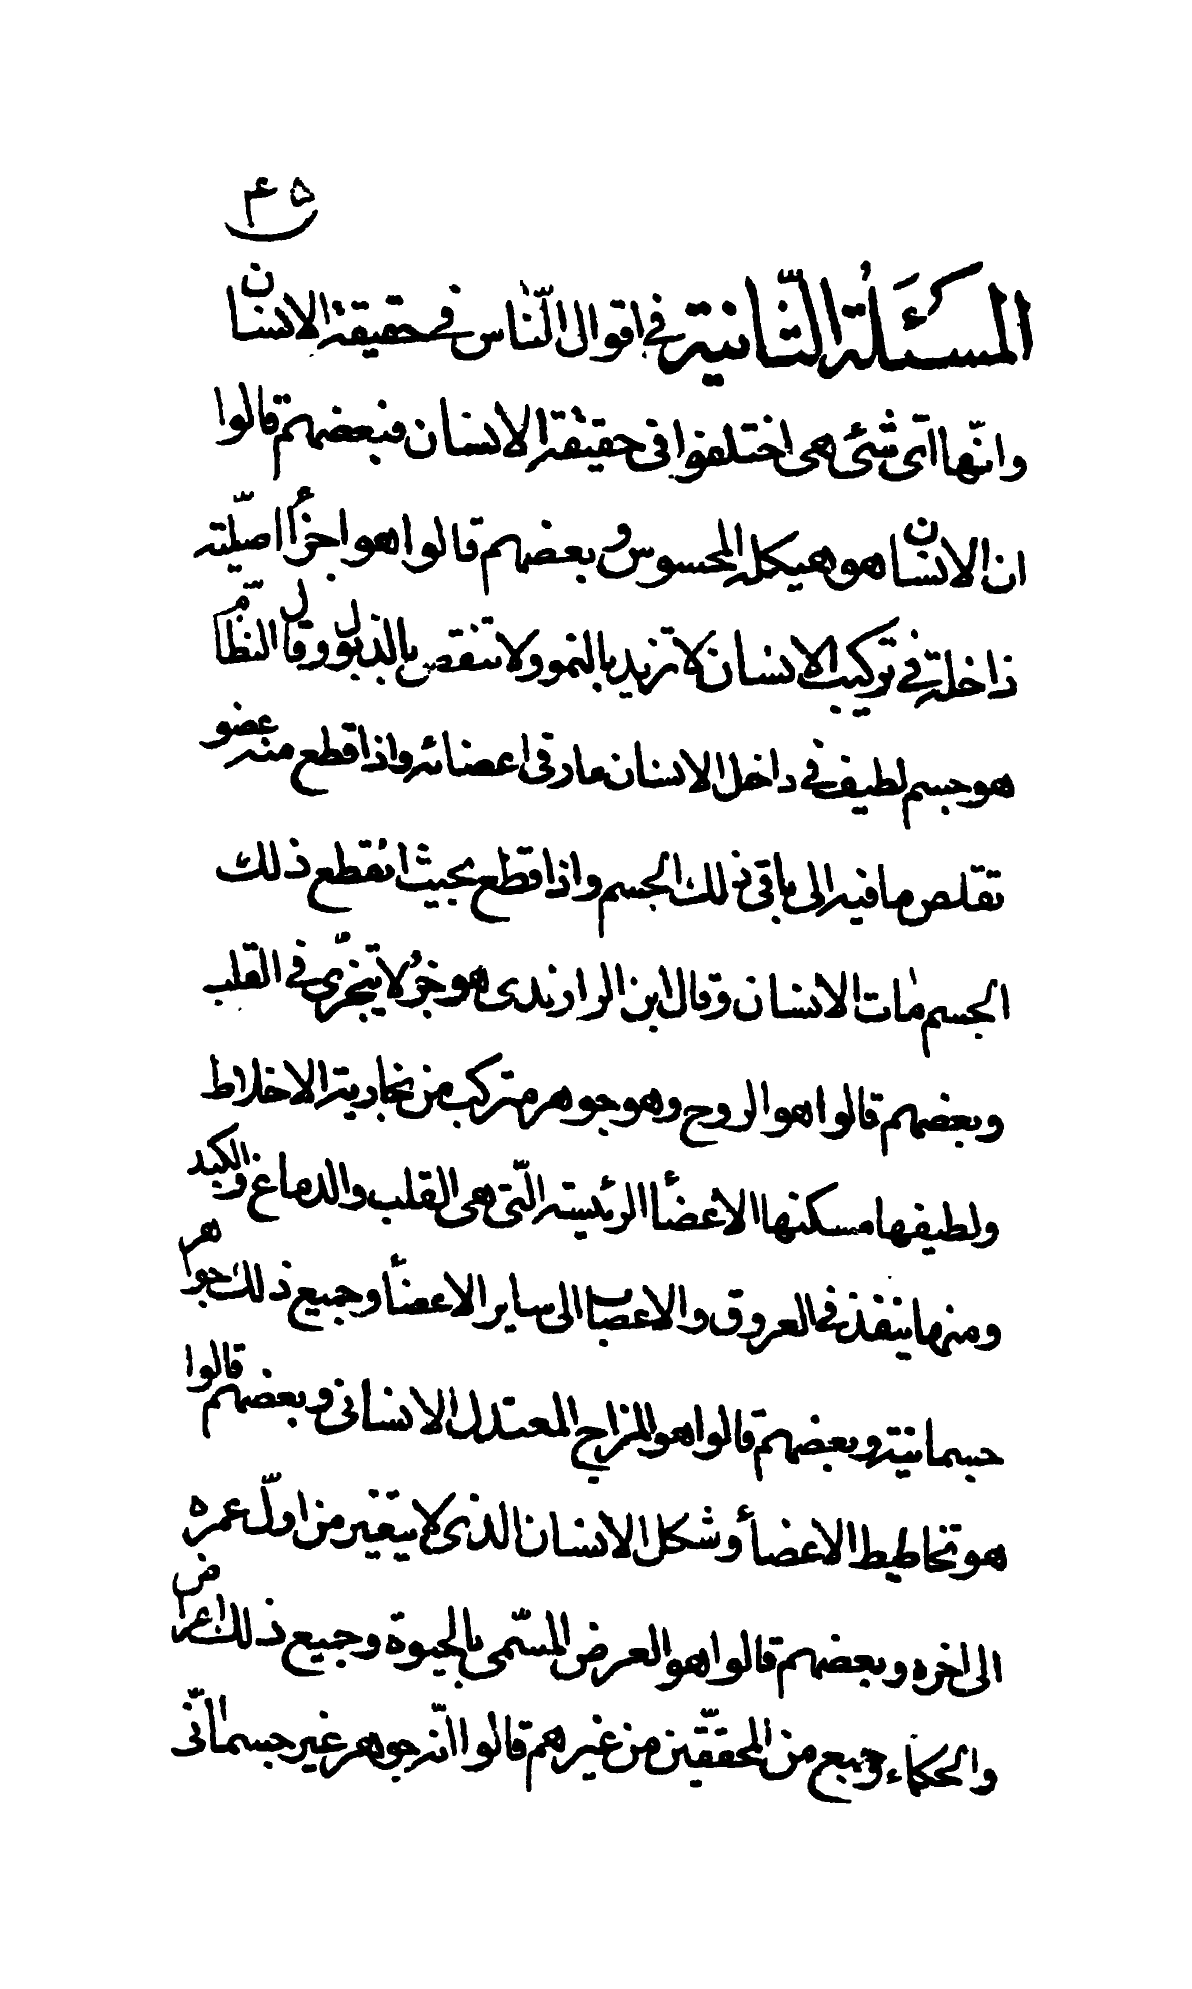 ٤٥
المسئلة الثّانية في اقوال النّاس في حقيقة الانسان
وانّها اىّ شئ هى اختلفوا فى حقيقة الانسان فبعضهم قالوا
ان الانسان هو هيكله المحسوس وبعضهم قالوا هو اجزأ اصليّة
داخلة في تركيب الانسان لا تزيد بالنمو ولا تنقص بالذبول وقال النظّام
هو جسم لطيف في داخل الانسان مار فى اعضائه واذا قطع منه عضو
تقلص ما فيه الى باقى ذلك الجسم واذا قطع بحيث انقطع ذلك
الجسم مات الانسان وقال ابن الراوندى هو جزء لا يتجزّى في القلب
وبعضهم قالوا هو الروح وهو جوهر متركب من بخارية الاخلاط
ولطيفها مسكنها الاعضأ الرئيسة الّتى هى القلب والدماغ والكبد
ومنها ينفذ في العروق والاعصاب الى ساير الاعضأ وجميع ذلك جواهر
جسمانية وبعضهم قالوا هو المزاج المعتدل الانسانى وبعضهم قالوا
هو تخاطيط الاعضأ وشكل الانسان الذى لا يتغير من اوّل عمره
الى اخره وبعضهم قالوا هو العرض المسّمى بالحيوة وجميع ذلك اعراض
والحكاء وجميع من المحققّين من غيرهم قالوا انّه جوهر غير جسمانّى